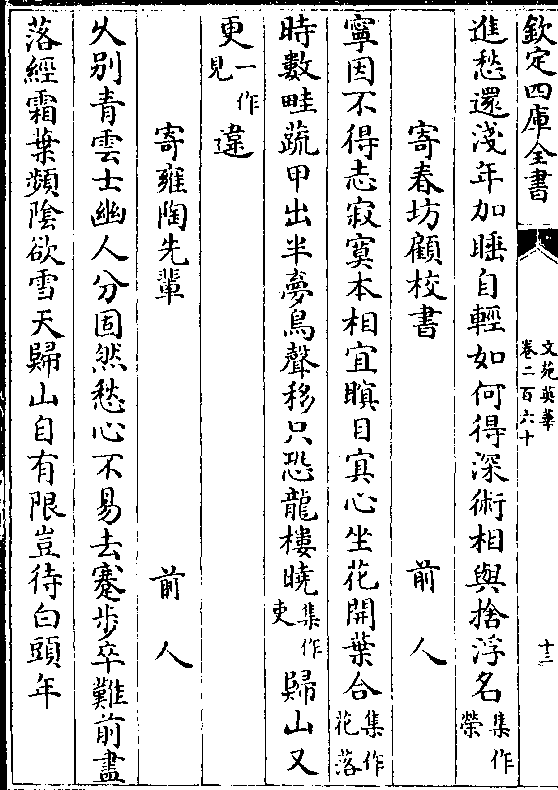 欽定四庫全書
文苑英華
卷二百六十
十三
進愁還淺年加睡自輕如何得深術相與捨浮名集作榮
寄春坊顧校書　前人
寧因不得志寂寞本相宜瞑目㝠心坐花開葉合集作花落
時數畦蔬甲出半夢鳥聲移只恐龍樓曉集作吏歸山又
更一作見違
寄雍陶先輩　前人
久別青雲士幽人分固然愁心不易去蹇步卒難前盡
落經霜葉頻陰欲雪天歸山自有限豈待白頭年